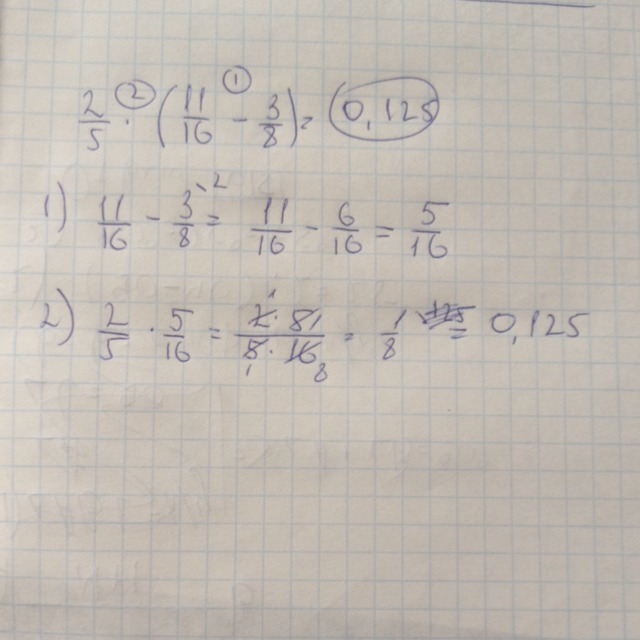 2/5 ·② (11/16 -① 3/8) = 0,125
1) 11/16 - 3/8\2 = 11/16 - 6/16 = 5/16
2) 2/5 · 5/16 = 2·5/5·16 = 1/8 = 0,125